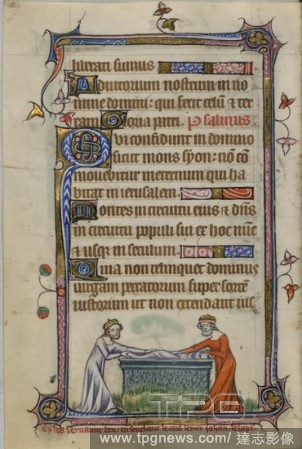 liberati sumus
Adiutorium nostrum in no
mine domini: qui fecit celū & ter
ram Gloria patri. Psalmus
Qui confidunt in domino
sicut mons syon: nō cō
movebitur in eternum qui ha
bitat in ierusalem
Montes in circuitu eius & dn̄s
in circuitu populi sui ex hoc nūc
& usqȝ in seculum
Quia non relinquet dominus
virgam peccatorum super sortē
iustorum ut non extendant ius
TPG
www.tpgnews.com/ 達志影像